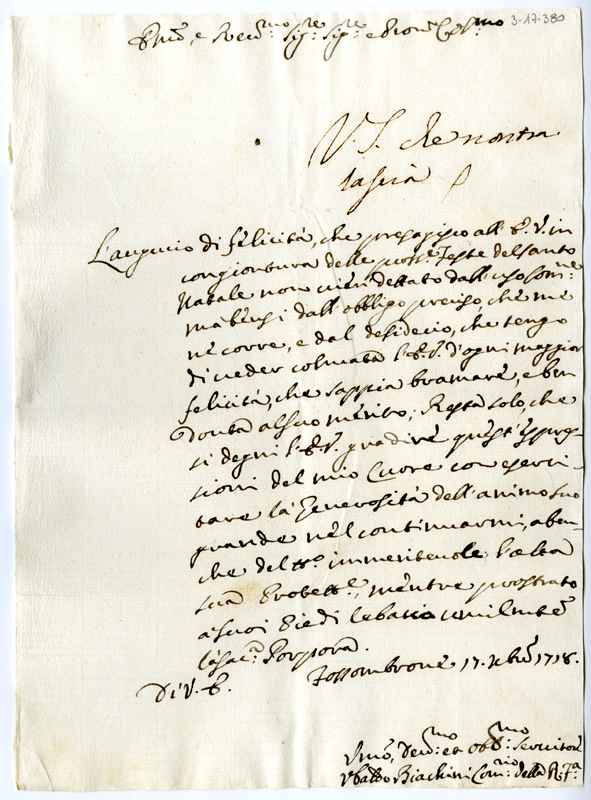 Em̃o, e Reu:mo Sig:re Sig:re e Pron Col:mo
3-17-380
V. S. che nostra
lascia
L'augurio di felicità, che presagisco all'E. V. in
congiontura delle pross.e Feste del santo
Natale non vien dettato dall'uso com:ne
mà bensì dall'obbligo preciso, che me
nè corre, e dal desiderio, che tengo
di ueder colmata l'E. V. d'ogni maggior
felicità, che sappia bramare, e ben
douta al suo merito; Resta solo, che
si degni l'E. V. gradire questi espres-
sioni del mio Cuore con eserci-
tare la Generosità dell'animo suo
grande nèl continuarmi, aben-
che del tt.o immeriteuole l'alta
sua Protett.e, mentre prostrato
a suoi Piedi le bacio umilmte
la sac.a Porpora.
Di V. E.
Fossombrone 17. Xbre 1718.
Vmo, Deu:mo et Obb:mo Seruitore
Vbaldo Biachini Com:rio della R: F:a